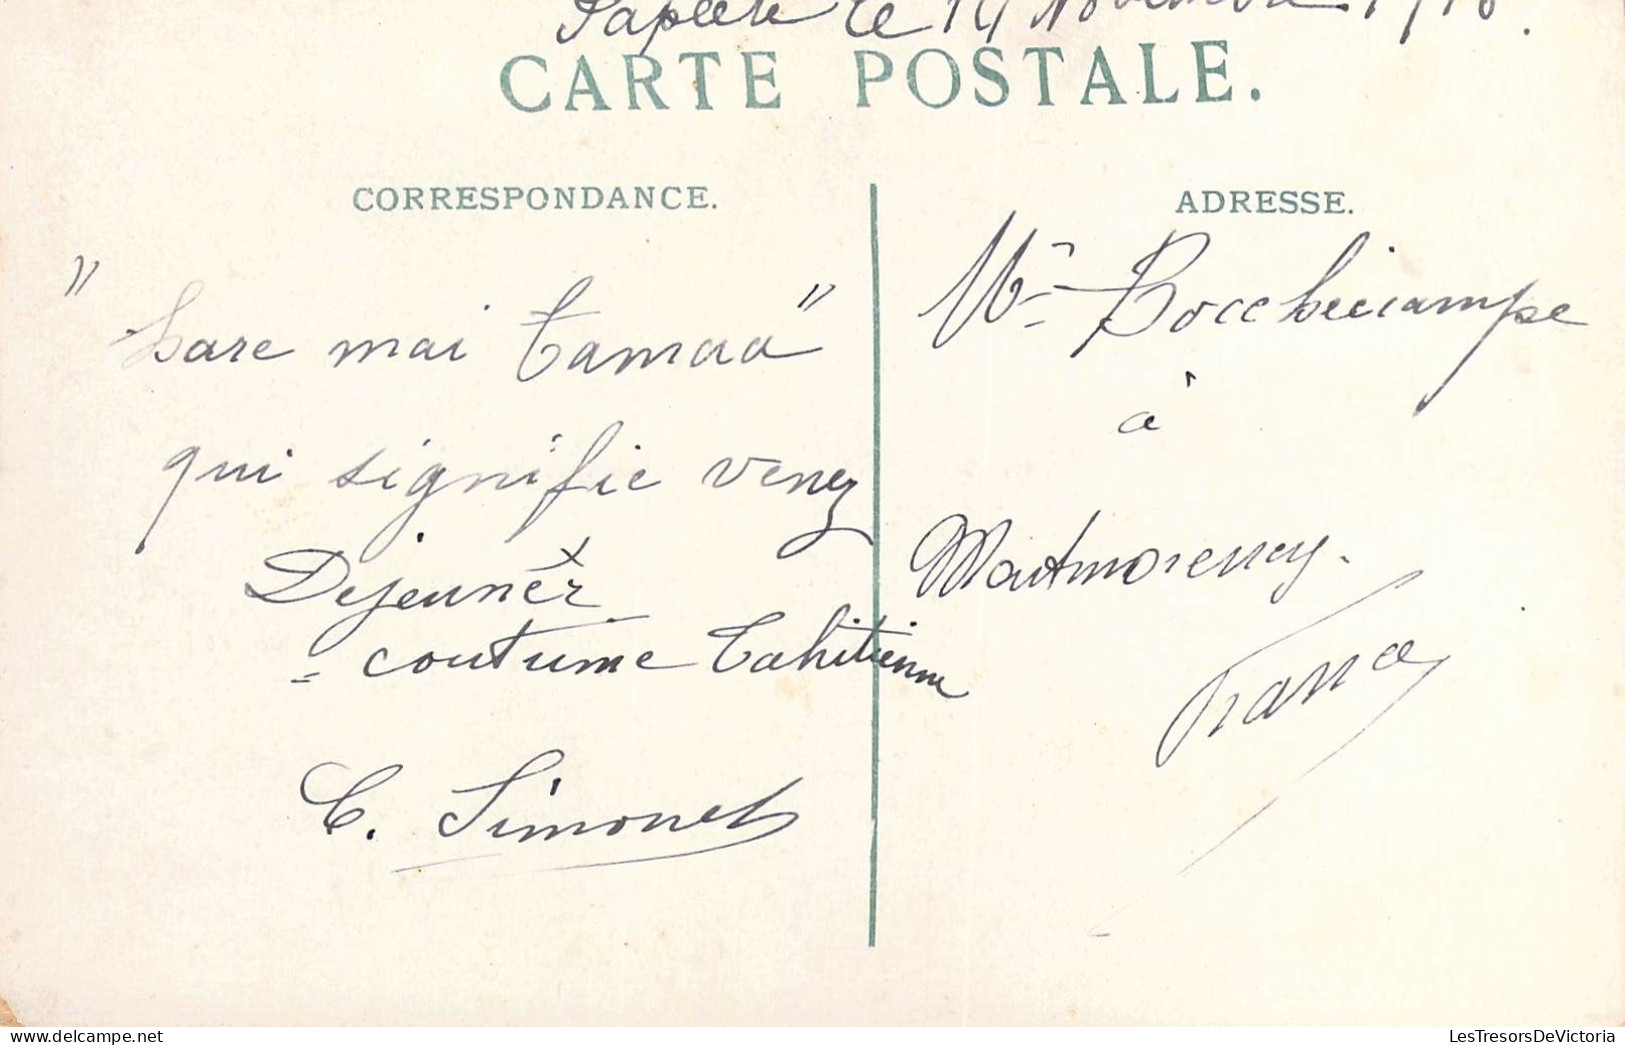 Papeete le 14 Novembre 1910.
CARTE POSTALE.
CORRESPONDANCE.
" hare mai tamaa "
qui signifie venez
Dejeunér
= coutume Tahitienne
C. Simonet
ADRESSE.
Mr Bocchéciampe
à
Montmorency.
France
LesTresorsDeVictoria